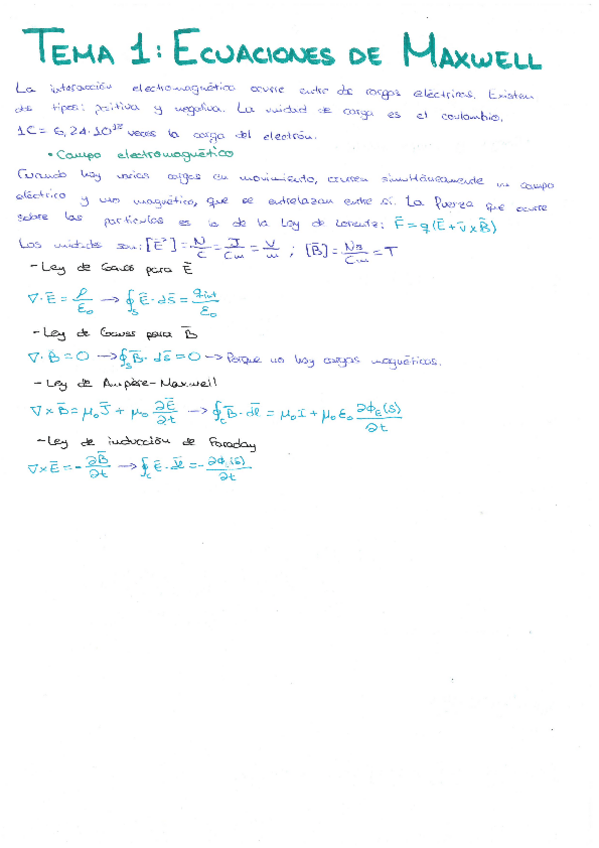 TEMA 1: ECUACIONES DE MAXWELL
La interacción electromagnética ocurre entre dos cargas eléctricas. Existen
dos tipos: positiva y negativa. La unidad de carga es el coulombio,
1C = 6,24·10¹⁸ veces la carga del electrón.
• Campo electromagnético
Cuando hay varias cargas en movimiento, crean simultáneamente un campo
eléctrico y uno magnético, que se entrelazan entre sí. La fuerza que ocurre
sobre las partículas es la de la Ley de Lorentz: F̄ = q(Ē + v̄ x B̄)
Las unidades son: [Ē] = N/C = J/Cm = V/m ; [B̄] = Ns/Cm = T
- Ley de Gauss para Ē
∇·Ē = ρ/ε₀ → ∮ₛ Ē·ds̄ = q_int/ε₀
- Ley de Gauss para B̄
∇·B̄ = 0 → ∮ₛ B̄·ds̄ = 0 → Porque no hay cargas magnéticas.
- Ley de Ampère-Maxwell
∇×B̄ = μ₀J̄ + μ₀ ∂Ē/∂t → ∮_c B̄·dl̄ = μ₀I + μ₀ε₀ ∂ϕ_E(S)/∂t
- Ley de inducción de Faraday
∇×Ē = - ∂B̄/∂t → ∮_c Ē·dl̄ = - ∂ϕ(S)/∂t